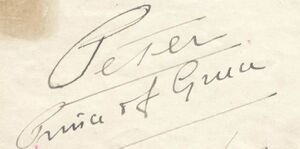 Peter
Prince of Greece